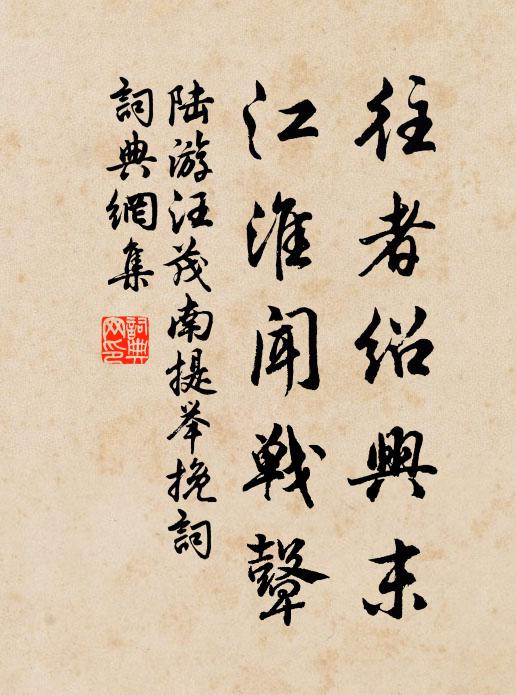 往者紹興末
江淮聞戰鼙
陸游汪茂南提舉挽詞
詞典網集
詞典
网印